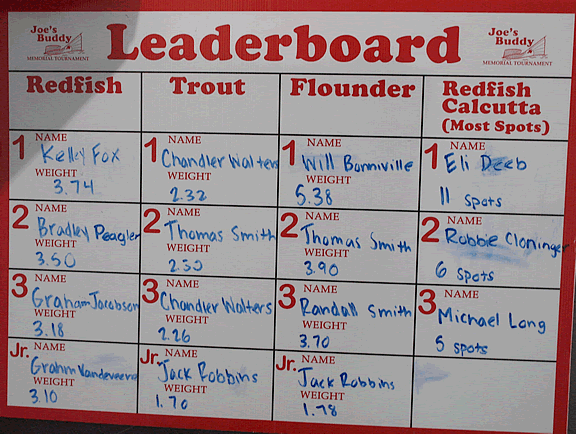 Joe's Buddy MEMORIAL TOURNAMENT
Leaderboard
Joe's Buddy MEMORIAL TOURNAMENT
Redfish
Trout
Flounder
Redfish Calcutta (Most Spots)
1 NAME
Kelley Fox
WEIGHT
3.74
1 NAME
Chandler Walters
WEIGHT
2.32
1 NAME
Will Bonniville
WEIGHT
5.38
1 NAME
Eli Deeb
11 spots
2 NAME
Bradley Peagler
WEIGHT
3.50
2 NAME
Thomas Smith
WEIGHT
2 NAME
Thomas Smith
WEIGHT
3.90
2 NAME
Robbie Cloninger
6 spots
3 NAME
Graham Jacobson
WEIGHT
3.18
3 NAME
Chandler Walters
WEIGHT
2.26
3 NAME
Randall Smith
WEIGHT
3.70
3 NAME
Michael Long
5 spots
Jr. NAME
Grahm Vandeveene
WEIGHT
3.10
Jr. NAME
Jack Robbins
WEIGHT
1.70
Jr. NAME
Jack Robbins
WEIGHT
1.78